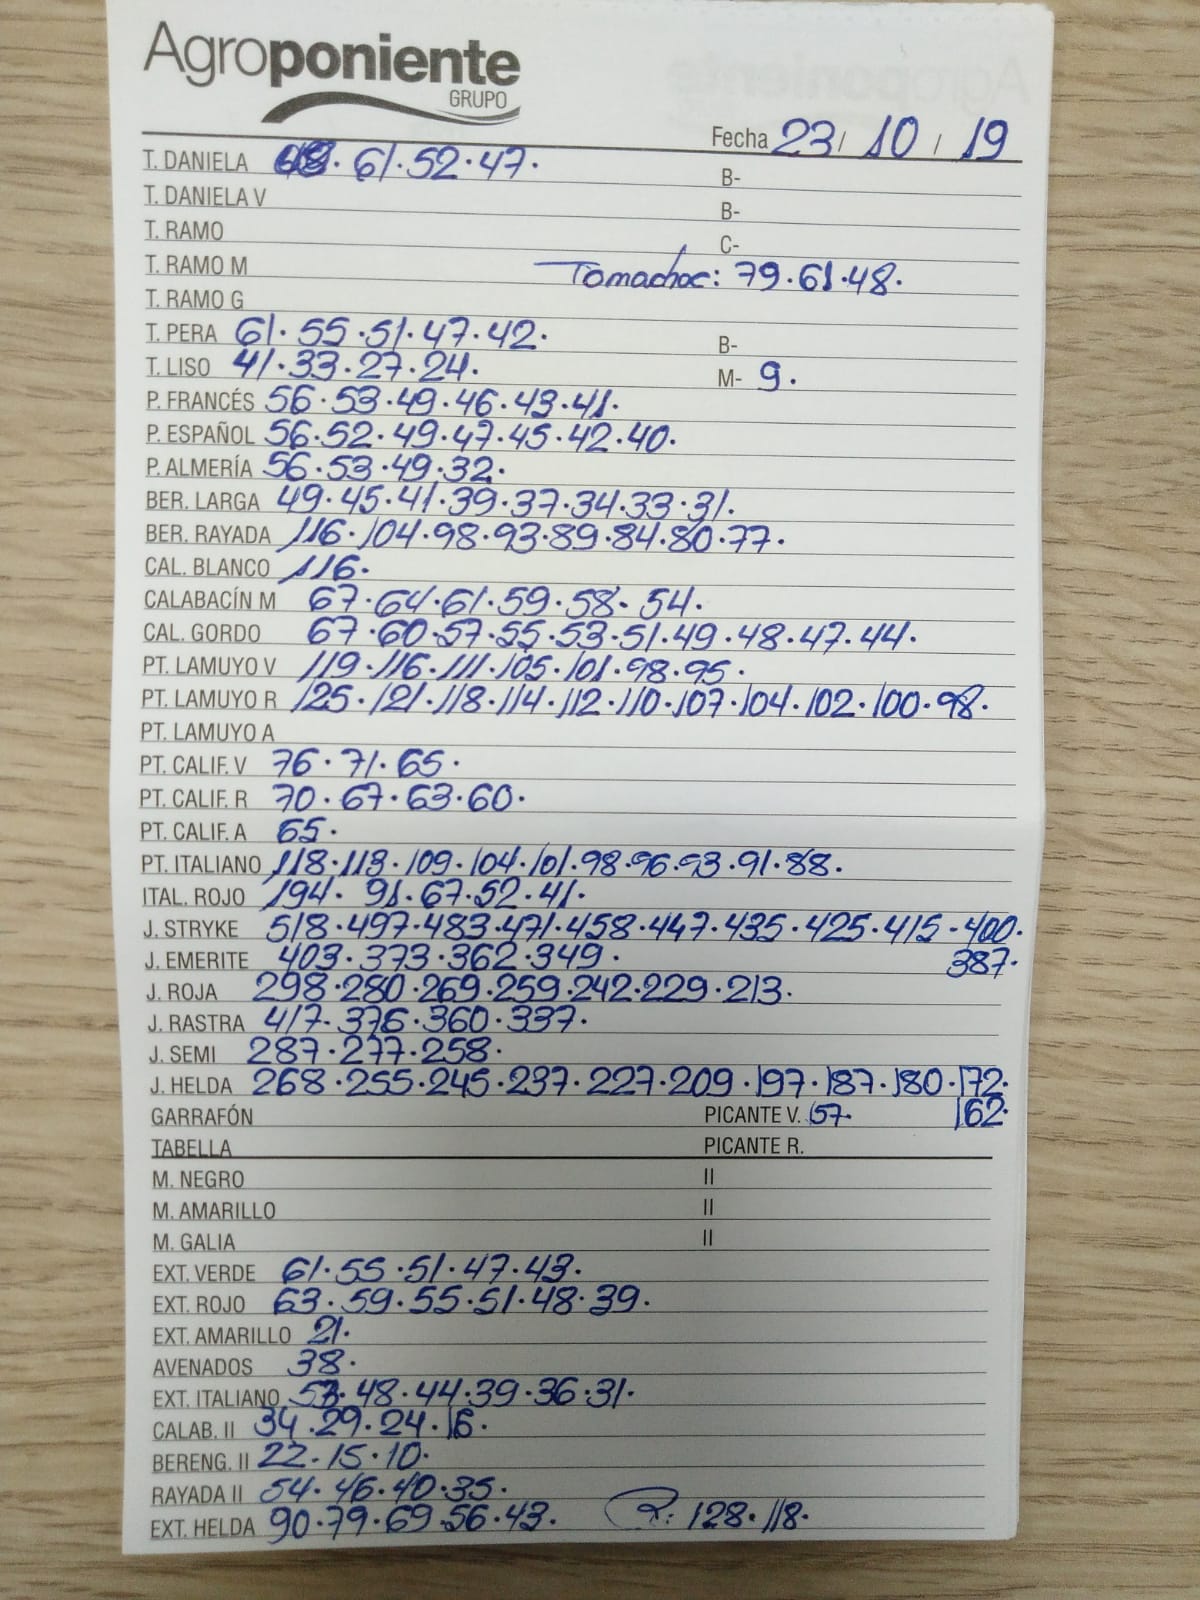 Agroponiente
GRUPO
Fecha 23/ 10 / 19
T. DANIELA 61.52.47. B-
T. DANIELA V B-
T. RAMO C-
T. RAMO M Tomachoc: 79.61.48.
T. RAMO G
T. PERA 61.55.51.47.42. B-
T. LISO 41.33.27.24. M- 9.
P. FRANCÉS 56.53.49.46.43.41.
P. ESPAÑOL 56.52.49.47.45.42.40.
P. ALMERÍA 56.53.49.32.
BER. LARGA 49.45.41.39.37.34.33.31.
BER. RAYADA 116.104.98.93.89.84.80.77.
CAL. BLANCO 116.
CALABACÍN M 67.64.61.59.58.54.
CAL. GORDO 67.60.57.55.53.51.49.48.47.44.
PT. LAMUYO V 119.116.111.105.101.98.95.
PT. LAMUYO R 125.121.118.114.112.110.107.104.102.100.98.
PT. LAMUYO A
PT. CALIF. V 76.71.65.
PT. CALIF. R 70.67.63.60.
PT. CALIF. A 65.
PT. ITALIANO 118.113.109.104.101.98.96.93.91.88.
ITAL. ROJO 194.91.67.52.41.
J. STRYKE 518.497.483.471.458.447.435.425.415.400.
J. EMERITE 403.373.362.349. 387.
J. ROJA 298.280.269.259.242.229.213.
J. RASTRA 417.376.360.337.
J. SEMI 287.277.258.
J. HELDA 268.255.245.237.227.209.197.187.180.172.
GARRAFÓN PICANTE V. 57. 162.
TABELLA PICANTE R.
M. NEGRO II
M. AMARILLO II
M. GALIA II
EXT. VERDE 61.55.51.47.43.
EXT. ROJO 63.59.55.51.48.39.
EXT. AMARILLO 21.
AVENADOS 38.
EXT. ITALIANO 53.48.44.39.36.31.
CALAB. II 34.29.24.16.
BERENG. II 22.15.10.
RAYADA II 54.46.40.35.
EXT. HELDA 90.79.69.56.43. R: 128.118.